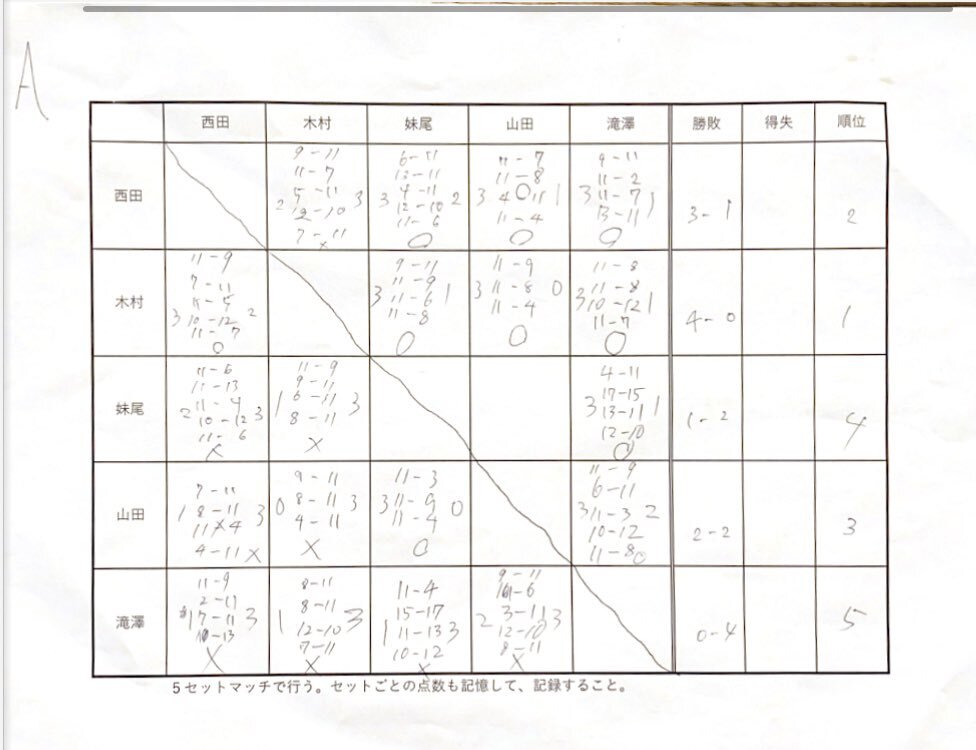 A
西田 木村 妹尾 山田 滝澤 勝敗 得失 順位
西田
9-11
11-7
5-11
2 12-10 3
7-11
×
6-11
13-11
4-11
3 12-10 2
11-6
○
11-7
11-8
3 4-11 1
11-4
○
9-11
11-2
3 11-7 1
13-11
○
3-1
2
木村
11-9
7-11
11-5
3 10-12 2
11-7
○
9-11
11-9
3 11-6 1
11-8
○
11-9
3 11-8 0
11-4
○
11-8
11-8
3 10-12 1
11-7
○
4-0
1
妹尾
11-6
11-13
11-4
2 10-12 3
11-6
×
11-9
9-11
1 6-11 3
8-11
×
4-11
17-15
3 13-11 1
12-10
○
1-2
4
山田
7-11
1 8-11 3
11-4
4-11 ×
9-11
0 8-11 3
4-11
×
11-3
3 11-9 0
11-4
○
11-9
6-11
3 11-3 2
10-12
11-8 ○
2-2
3
滝澤
11-9
2-11
1 7-11 3
11-13
×
8-11
8-11
1 12-10 3
7-11
×
11-4
15-17
1 11-13 3
10-12
×
9-11
11-6
2 3-11 3
12-10
8-11
×
0-4
5
5セットマッチで行う。セットごとの点数も記憶して、記録すること。